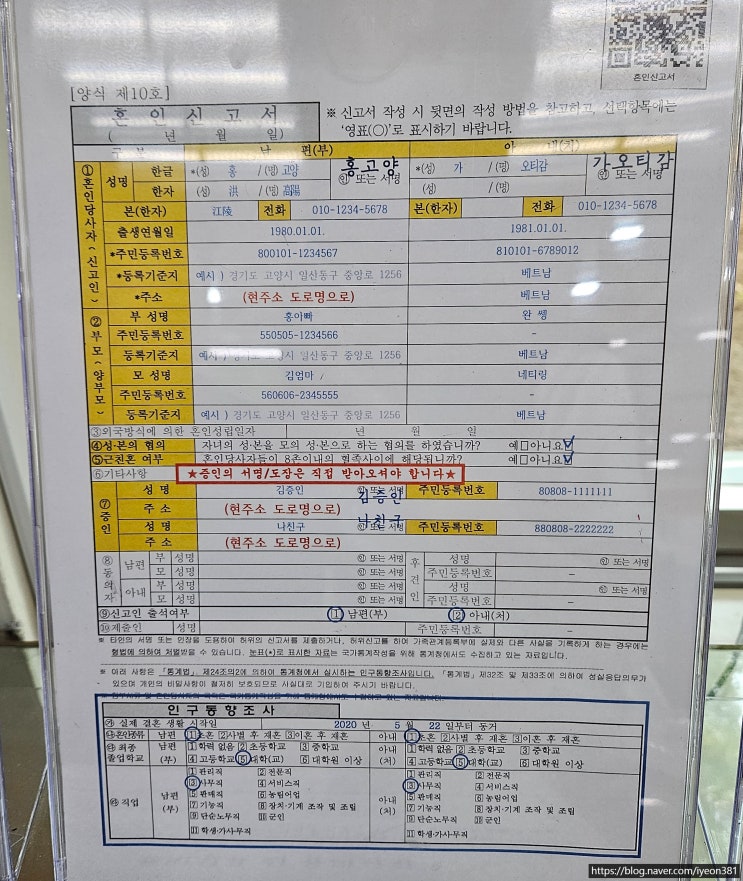 혼인신고서
[양식 제10호]
혼 인 신 고 서
( 년 월 일)
※ 신고서 작성 시 뒷면의 작성 방법을 참고하고, 선택항목에는
'영표(○)'로 표시하기 바랍니다.
구 분 남 편(부) 아 내(처)
①혼인당사자(신고인)
성명 한글 *(성) 홍 /(명) 고양 홍고양 ㊞ 또는 서명 *(성) 가 /(명) 오티감 가오티감 ㊞ 또는 서명
한자 (성) 洪 /(명) 高陽 (성) /(명)
본(한자) 江陵 전화 010-1234-5678 본(한자) 전화 010-1234-5678
출생연월일 1980.01.01. 1981.01.01.
*주민등록번호 800101-1234567 810101-6789012
*등록기준지 예시 ) 경기도 고양시 일산동구 중앙로 1256 베트남
*주소 (현주소 도로명으로) 베트남
②부모(양부모)
부 성명 홍아빠 완 쌩
주민등록번호 550505-1234566 -
등록기준지 예시 ) 경기도 고양시 일산동구 중앙로 1256 베트남
모 성명 김엄마 네티링
주민등록번호 560606-2345555 -
등록기준지 예시 ) 경기도 고양시 일산동구 중앙로 1256 베트남
③외국방식에 의한 혼인성립일자 년 월 일
④성·본의 협의 자녀의 성·본을 모의 성·본으로 하는 협의를 하였습니까? 예□아니요☑
⑤근친혼 여부 혼인당사자들이 8촌이내의 혈족사이에 해당됩니까? 예□아니요☑
⑥기타사항 ★증인의 서명/도장은 직접 받아오셔야 합니다★
⑦증인
성 명 김증인 김증인 ㊞ 또는 서명 주민등록번호 80808-1111111
주 소 (현주소 도로명으로)
성 명 나친구 나친구 ㊞ 또는 서명 주민등록번호 880808-2222222
주 소 (현주소 도로명으로)
⑧동의자 남편 부 성명 ㊞ 또는 서명 후견인 성명 ㊞ 또는 서명
모 성명 ㊞ 또는 서명 주민등록번호 -
아내 부 성명 ㊞ 또는 서명 성명 ㊞ 또는 서명
모 성명 ㊞ 또는 서명 주민등록번호 -
⑨신고인 출석여부 1 남편(부) 2 아내(처)
⑩제출인 성명 주민등록번호 -
※ 타인의 서명 또는 인장을 도용하여 허위의 신고서를 제출하거나, 허위신고를 하여 가족관계등록부에 실제와 다른 사실을 기록하게 하는 경우에는
형법에 의하여 처벌받을 수 있습니다. 눈표(*)로 표시한 자료는 국가통계작성을 위해 통계청에서도 수집하고 있는 자료입니다.
※ 아래 사항은 「통계법」 제24조의2에 의하여 통계청에서 실시하는 인구동향조사입니다. 「통계법」제32조 및 제33조에 의하여 성실응답의무가
있으며 개인의 비밀사항이 철저히 보호되므로 사실대로 기입하여 주시기 바랍니다.
인구동향조사
㉮ 실제 결혼 생활 시작일 2020 년 5 월 22 일부터 동거
㉯혼인종류 남편 1초혼 2사별 후 재혼 3이혼 후 재혼 아내 1초혼 2사별 후 재혼 3이혼 후 재혼
㉰최종 졸업학교 남편(부) 1학력 없음 2초등학교 3중학교 아내(처) 1학력 없음 2초등학교 3중학교
4고등학교 5대학(교) 6대학원 이상 4고등학교 5대학(교) 6대학원 이상
㉱직업 남편(부) 아내(처)
1관리직 2전문직 1관리직 2전문직
3사무직 4서비스직 3사무직 4서비스직
5판매직 6농림어업 5판매직 6농림어업
7기능직 8장치·기계 조작 및 조립 7기능직 8장치·기계 조작 및 조립
9단순노무직 10군인 9단순노무직 10군인
11학생·가사·무직 11학생·가사·무직
https://blog.naver.com/iyeon381